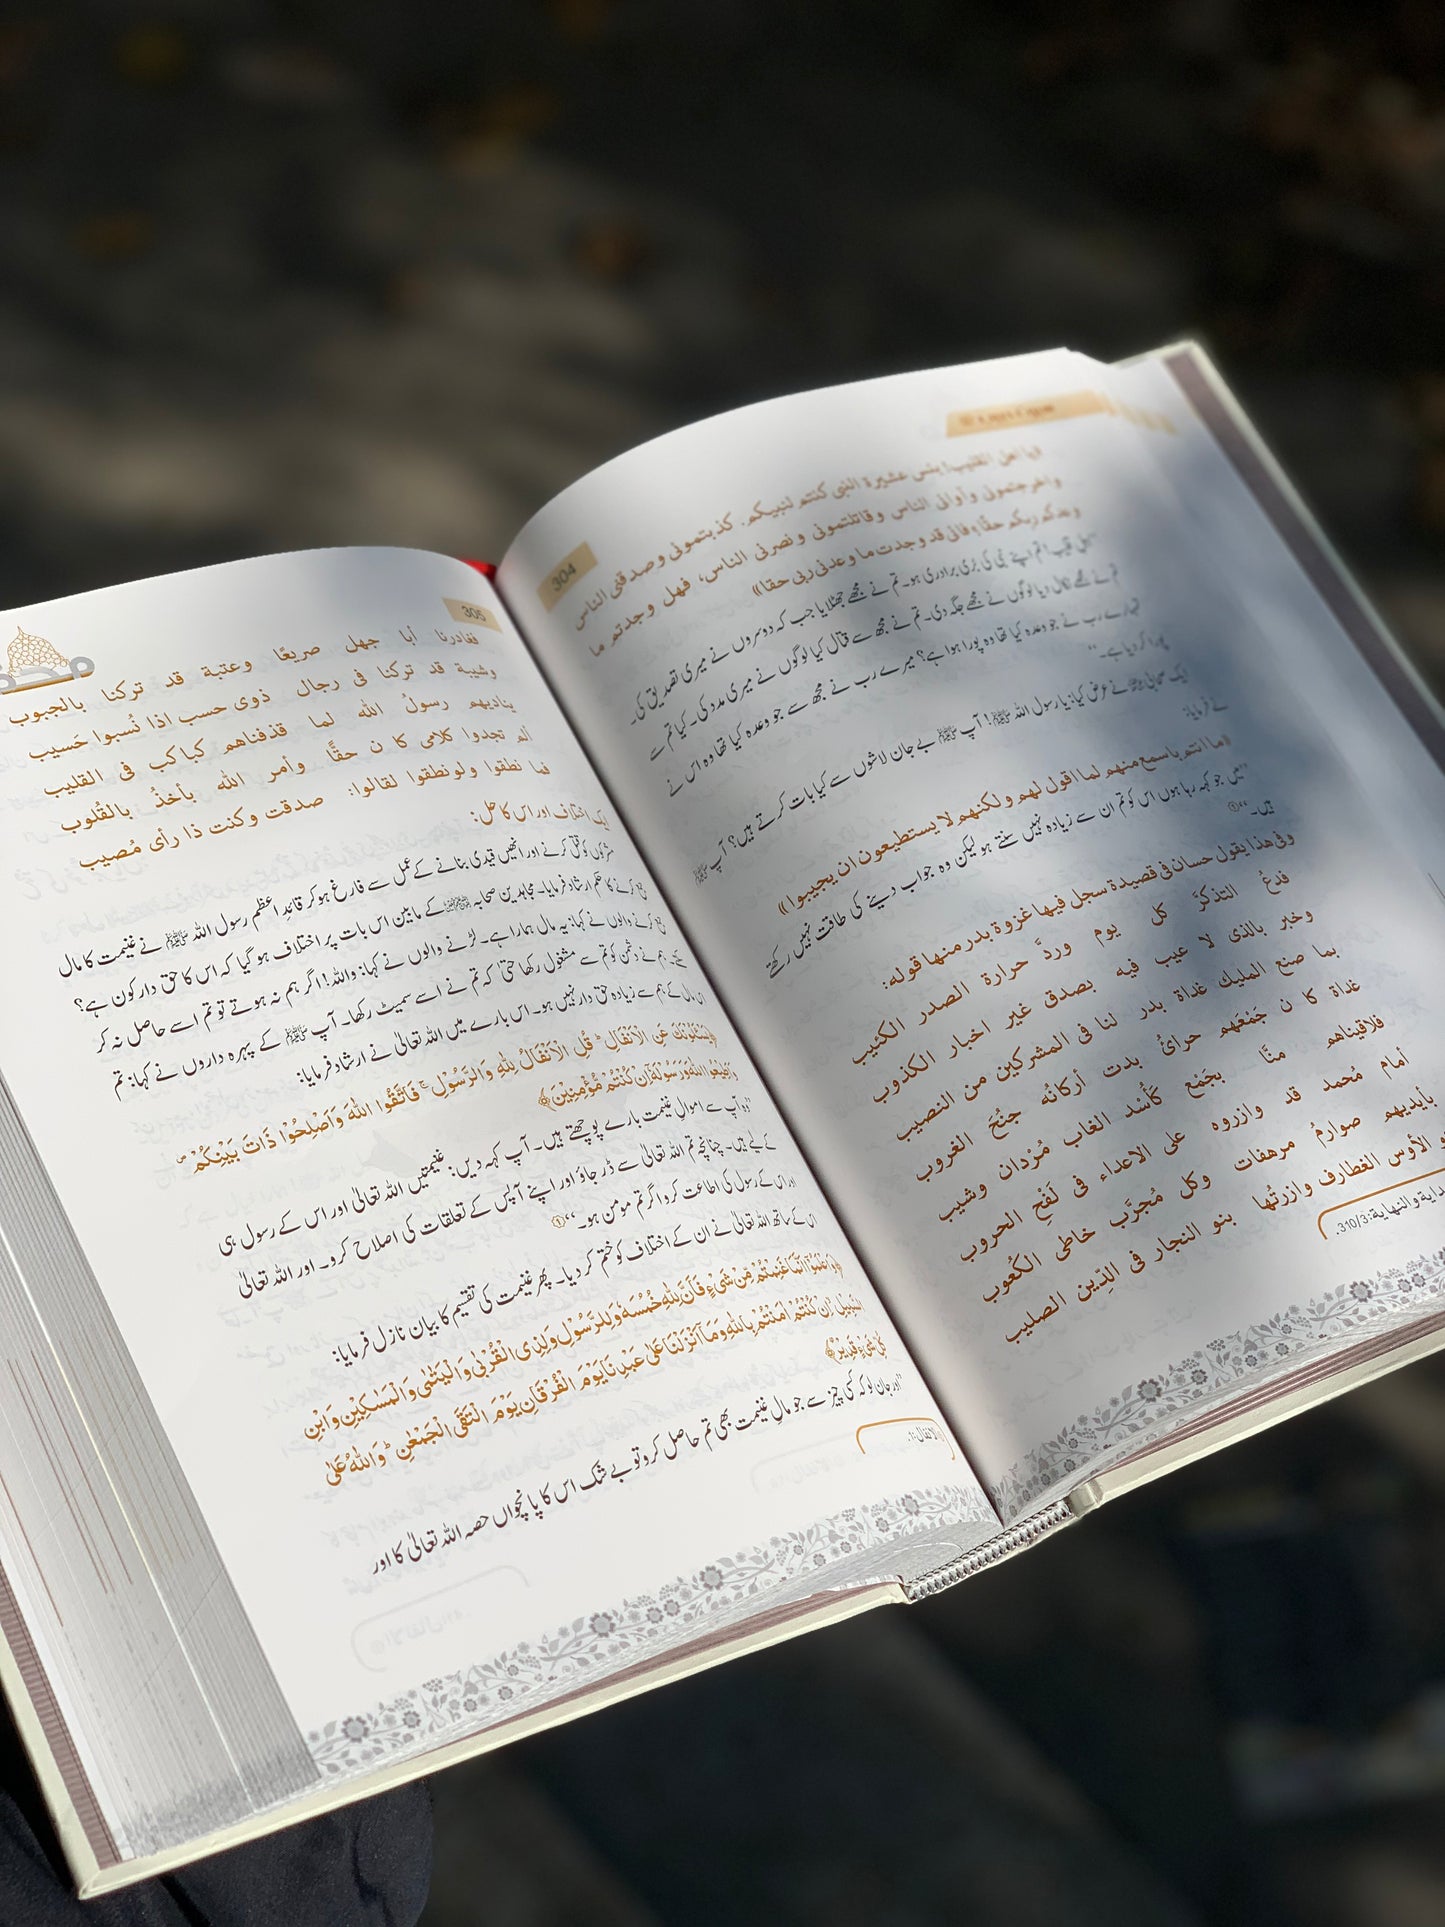 304
«يا اهل القليب! بئس عشيرة النبى كنتم لنبيكم. كذبتمونى وصدقنى الناس
واخرجتمونى وآوانى الناس وقاتلتمونى ونصرنى الناس، فهل وجدتم ما
وعدكم ربكم حقًا؟ فانى قد وجدت ما وعدنى ربى حقا»
اپنے نبی کی بُری برادری ہو۔ تم نے مجھے جھٹلایا جب کہ دوسروں نے میری تصدیق کی۔
تم نے مجھے نکال دیا لوگوں نے مجھے جگہ دی۔ تم نے مجھ سے قتال کیا لوگوں نے میری مدد کی۔ کیا تم سے
تمہارے رب نے جو وعدہ کیا تھا وہ پورا ہوا ہے؟ میرے رب نے مجھ سے جو وعدہ کیا تھا وہ اس نے
پورا کر دیا ہے۔‘‘
ایک صحابی نے عرض کیا: یا رسول اللہ ﷺ! آپ ﷺ بے جان لاشوں سے کیا بات کرتے ہیں؟ آپ ﷺ
نے فرمایا:
«ما انتم باسمع منهم لما اقول لهم ولكنهم لا يستطيعون ان يجيبوا»
’’میں جو کہہ رہا ہوں اس کو تم ان سے زیادہ نہیں سنتے ہو لیکن وہ جواب دینے کی طاقت نہیں رکھتے
ہیں۔‘‘①
وفى هذا يقول حسان فى قصيدة سجل فيها غزوة بدر منها قوله:
فدعُ التذكرَ كل يوم وردَّ حرارة الصدر الكئيب
وخبر بالذى لا عيب فيه بصدق غير اخبار الكذوب
بما صنع المليك غداة بدر لنا فى المشركين من النصيب
غداة كا ن جَمْعَهم حرائُ بدت أركانُه جنْحَ الغروب
فلاقيناهم منَّا بجَمْع كَأُسْد الغاب مُرْدان وشيب
أمام مُحمد قد وازروه على الاعداء فى لَفْحِ الحروب
بأيديهم صوارمُ مرهفات وكل مُجرَّب خاطى الكُعوب
الأوس الغطارف وازرتُها بنو النجار فى الدِّين الصليب
داية والنهاية:310/3.
305
فغادرنا أبا جهل صريعًا وعتبة قد تركنا بالجبوب
وشيبة قد تركنا فى رجال ذوى حسب اذا نُسبوا حَسيب
يناديهم رسولُ الله لما قذفناهم كباكب فى القليب
ألم تجدوا كلامى كا ن حقًّا وأمر الله يأخذُ بالقُلوب
فما نطقوا ولو نطقوا لقالوا: صدقت وكنت ذا رأى مُصيب
ایک اختلاف اور اس کا حل:
مشرکوں کو قتل کرنے اور انھیں قیدی بنانے کے عمل سے فارغ ہو کر قائدِ اعظم رسول اللہ ﷺ نے غنیمت کا مال
جمع کرنے کا حکم ارشاد فرمایا۔ مجاہدین صحابہ کے مابین اس بات پر اختلاف ہو گیا کہ اس کا حق دار کون ہے؟
جمع کرنے والوں نے کہا: یہ مال ہمارا ہے۔ لڑنے والوں نے کہا: واللہ! اگر ہم نہ ہوتے تو تم اسے حاصل نہ کر
سکتے۔ ہم نے دشمن کو تم سے مشغول رکھا حتیٰ کہ تم نے اسے سمیٹ رکھا۔ آپ ﷺ کے پہرہ داروں نے کہا: تم
اس مال کے ہم سے زیادہ حق دار نہیں ہو۔ اس بارے میں اللہ تعالیٰ نے ارشاد فرمایا:
﴿يَسْـَٔلُوْنَكَ عَنِ الْاَنْفَالِ ؕ قُلِ الْاَنْفَالُ لِلّٰهِ وَالرَّسُوْلِ ۚ فَاتَّقُوا اللّٰهَ وَاَصْلِحُوْا ذَاتَ بَيْنِكُمْ ۪
وَاَطِيْعُوا اللّٰهَ وَرَسُوْلَهٗۤ اِنْ كُنْتُمْ مُّؤْمِنِيْنَ﴾
’’وہ آپ سے اموالِ غنیمت بارے پوچھتے ہیں۔ آپ کہہ دیں: غنیمتیں اللہ تعالیٰ اور اس کے رسول ہی
کے لیے ہیں۔ چنانچہ تم اللہ تعالیٰ سے ڈر جاؤ اور اپنے آپس کے تعلقات کی اصلاح کرو۔ اور اللہ تعالیٰ
اور اس کے رسول کی اطاعت کرو اگر تم مومن ہو۔‘‘①
اس کے ساتھ اللہ تعالیٰ نے ان کے اختلاف کو ختم کر دیا۔ پھر غنیمت کی تقسیم کا بیان نازل فرمایا:
﴿وَاعْلَمُوْۤا اَنَّمَا غَنِمْتُمْ مِّنْ شَيْءٍ فَاَنَّ لِلّٰهِ خُمُسَهٗ وَلِلرَّسُوْلِ وَلِذِي الْقُرْبٰى وَالْيَتٰمٰى وَالْمَسٰكِيْنِ وَابْنِ
السَّبِيْلِ ۙ اِنْ كُنْتُمْ اٰمَنْتُمْ بِاللّٰهِ وَمَاۤ اَنْزَلْنَا عَلٰى عَبْدِنَا يَوْمَ الْفُرْقَانِ يَوْمَ الْتَقَى الْجَمْعٰنِ ؕ وَاللّٰهُ عَلٰى
كُلِّ شَيْءٍ قَدِيْرٌ﴾
’’اور جان لو کہ کسی چیز سے جو مالِ غنیمت بھی تم حاصل کرو تو بے شک اس کا پانچواں حصہ اللہ تعالیٰ کا اور
الانفال:1.